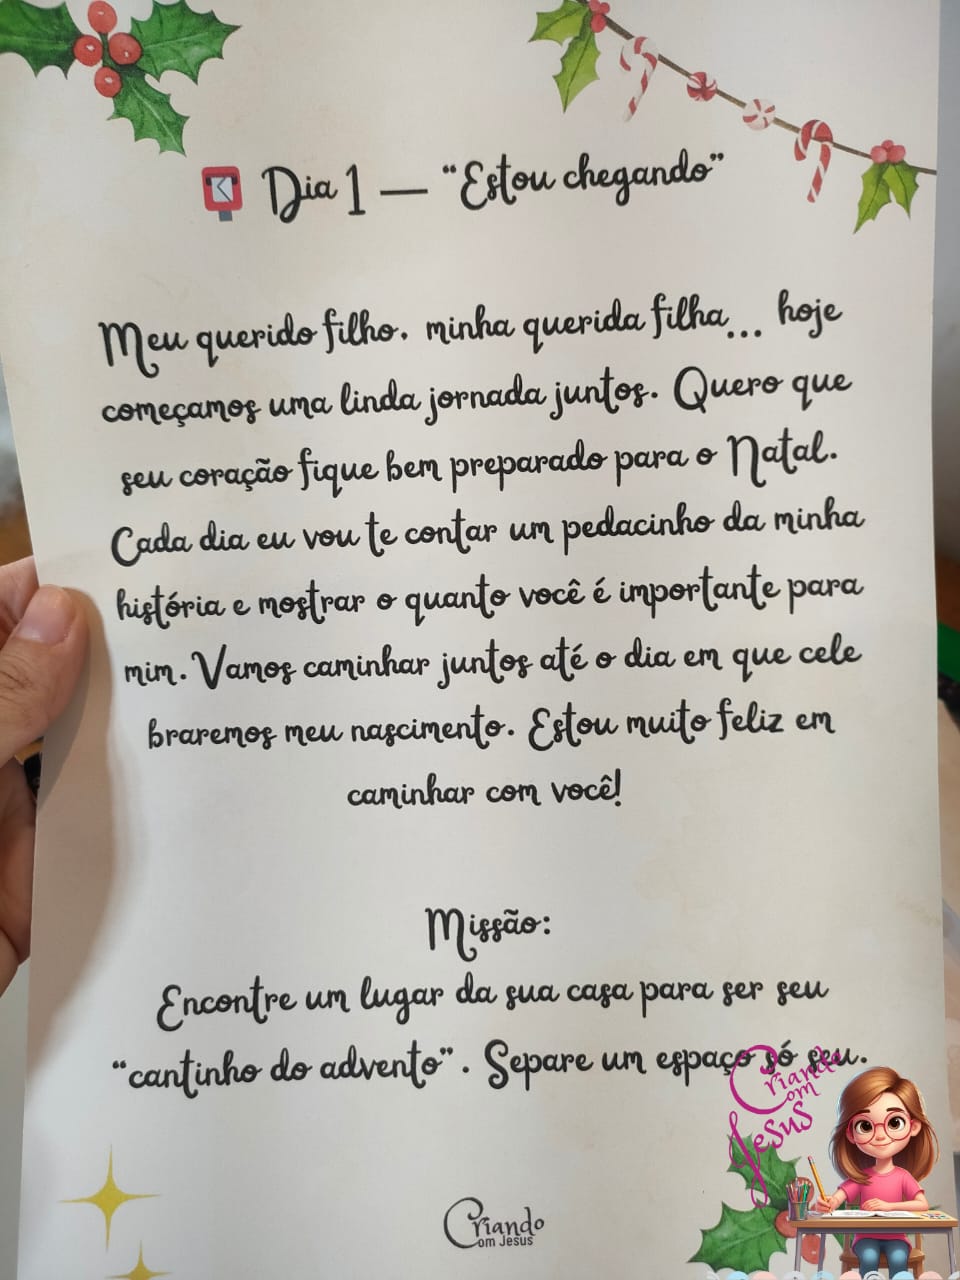 Dia 1 — “Estou chegando”
Meu querido filho, minha querida filha... hoje
começamos uma linda jornada juntos. Quero que
seu coração fique bem preparado para o Natal.
Cada dia eu vou te contar um pedacinho da minha
história e mostrar o quanto você é importante para
mim. Vamos caminhar juntos até o dia em que cele
braremos meu nascimento. Estou muito feliz em
caminhar com você!
Missão:
Encontre um lugar da sua casa para ser seu
“cantinho do advento”. Separe um espaço só seu.
Criando
com
Jesus
Criando
Com Jesus